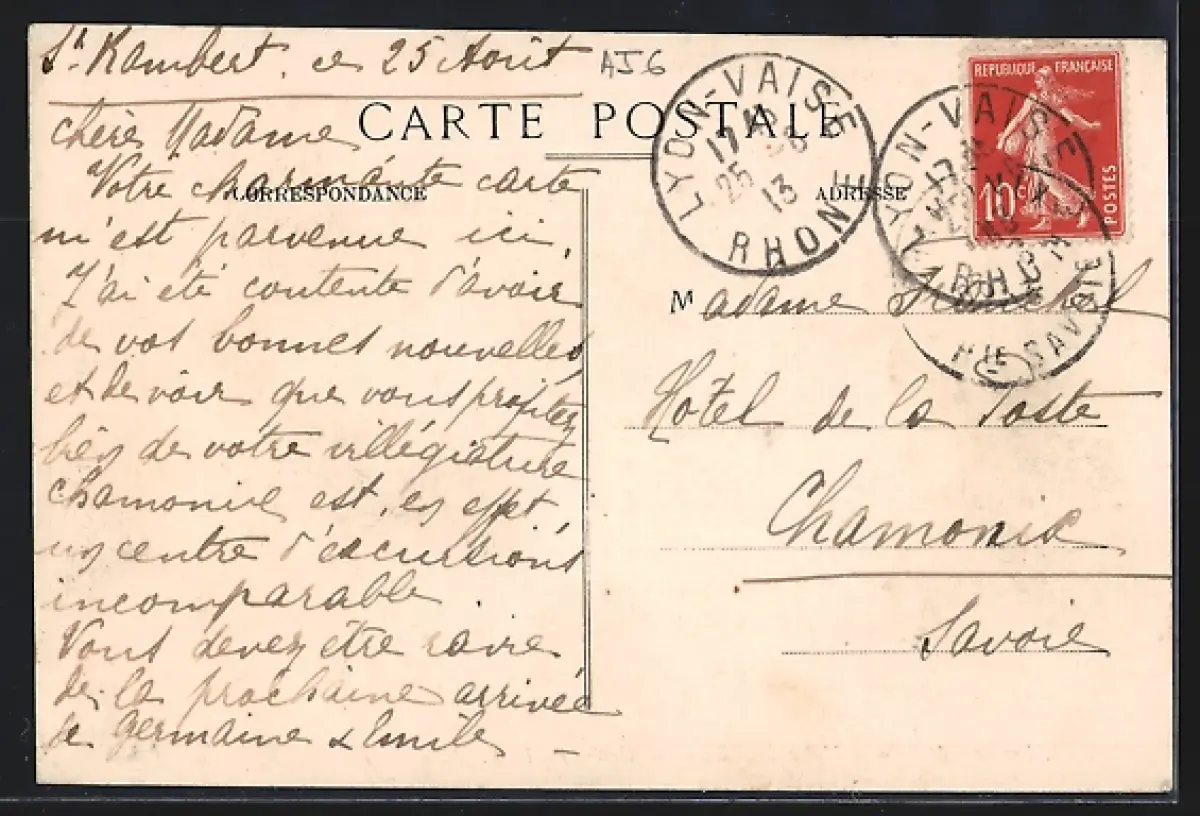 St Rambert, ce 25 Août
AJ6
CARTE POSTALE
Chère Madame
CORRESPONDANCE
Votre charmante carte
m'est parvenue ici.
J'ai été contente d'avoir
de vos bonnes nouvelles
et de voir que vous profitez
bien de votre villégiature
Chamonix est, en effet,
un centre d'excursions
incomparable.
Vous devez être ravie
de la prochaine arrivée
de Germaine & Emile
LYON-VAISE
17
25 8
13
RHONE
LYON-VAISE
RHONE
HTE SAVOIE
REPUBLIQUE FRANÇAISE
10c
POSTES
ADRESSE
Madame
Hôtel de la Poste
Chamonix
Savoie